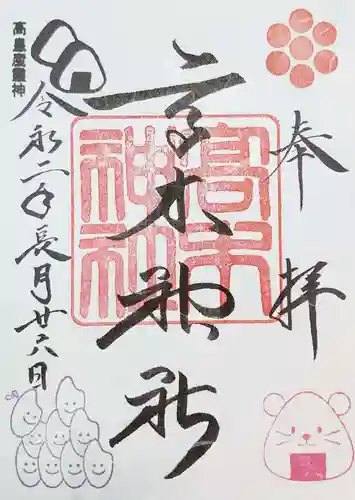 奉拝
高木神社
高木神社
令和二年長月廿六日
高皇産靈神